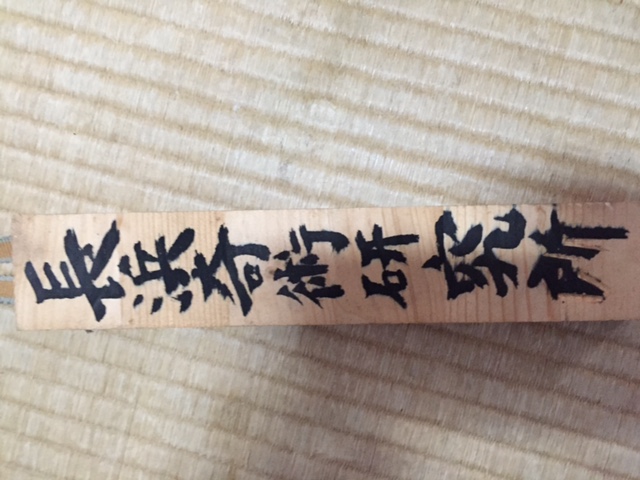 長浜奇術研究所